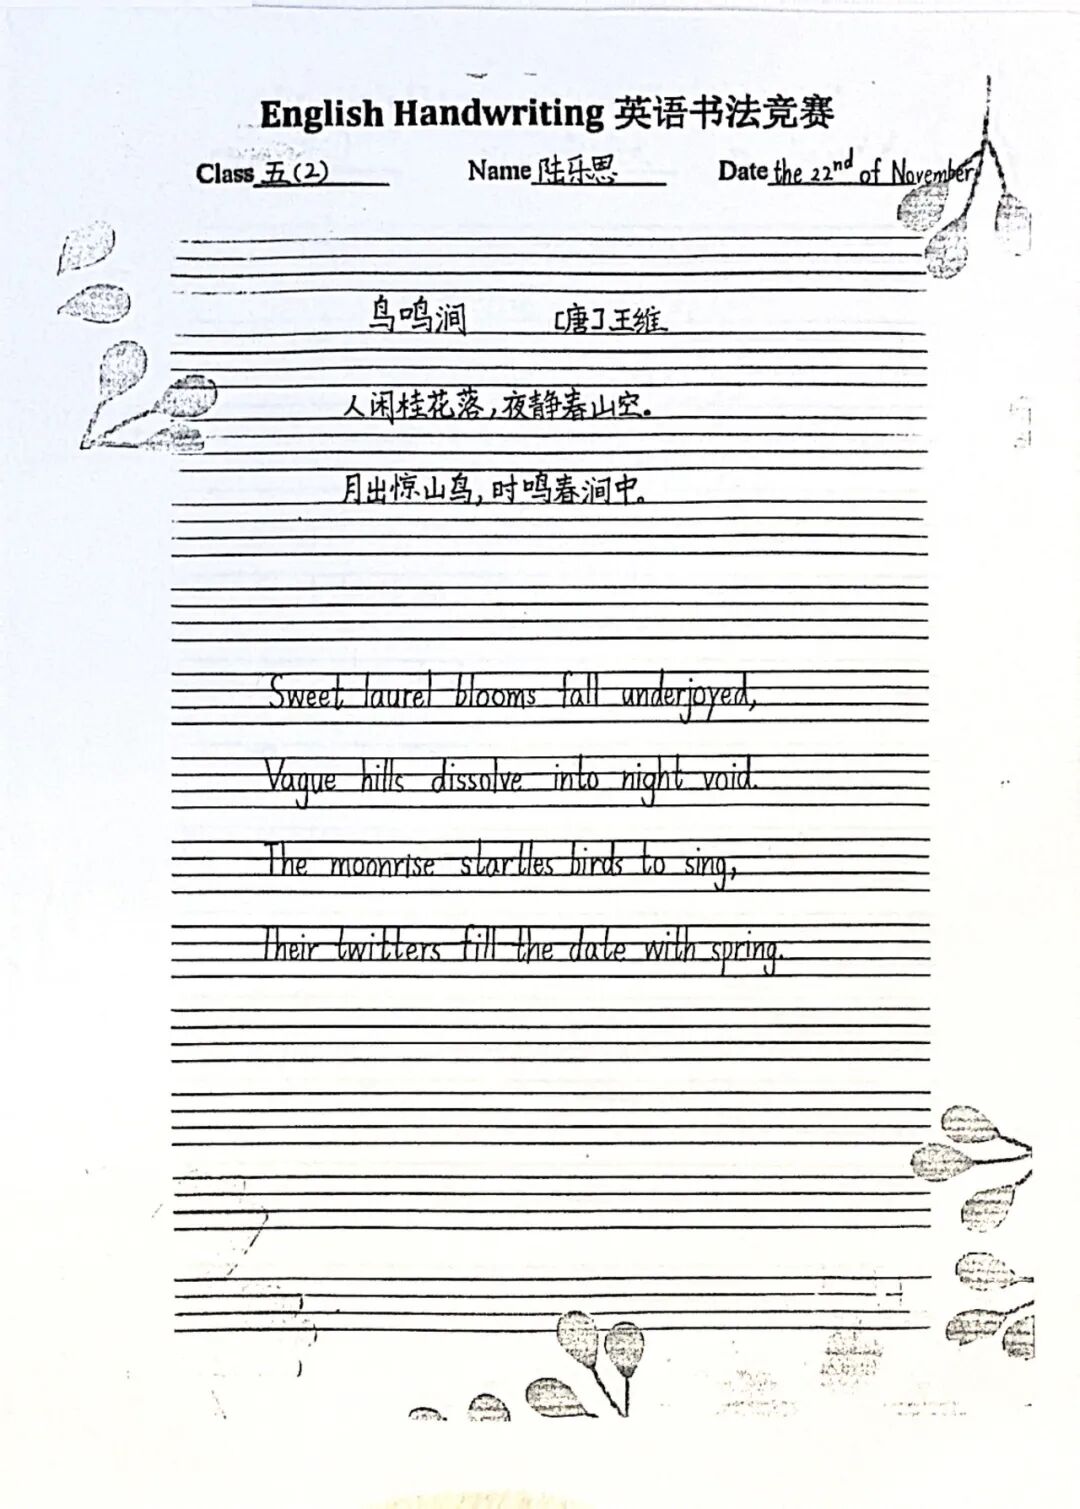 English Handwriting 英语书法竞赛
Class 五(2) Name 陆乐思 Date the 22nd of November
鸟鸣涧 [唐]王维
人闲桂花落,夜静春山空。
月出惊山鸟,时鸣春涧中。
Sweet laurel blooms fall underjoyed,
Vague hills dissolve into night void.
The moonrise startles birds to sing,
Their twitters fill the date with spring.